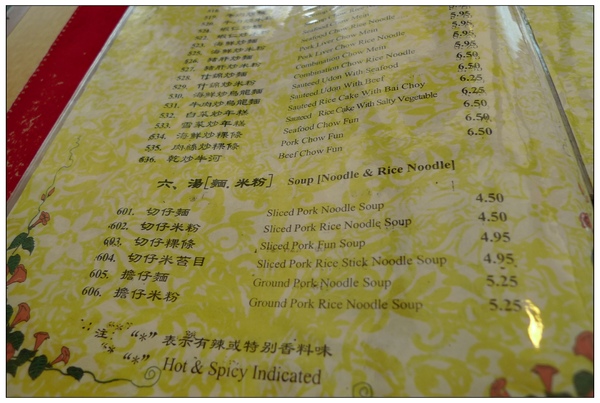 豬肝炒麵 Pork Liver Chow Mein 5.95
527. 豬肝炒米粉 Pork Liver Chow Rice Noodle 5.95
528. 什錦炒麵 Combination Chow Mein 5.95
529. 什錦炒米粉 Combination Chow Rice Noodle 5.95
530. 海鮮炒烏龍麵 Sauteed Udon With Seafood 6.50
531. 牛肉炒烏龍麵 Sauteed Udon With Beef 6.50
532. 白菜炒年糕 Sauteed Rice Cake With Bai Choy 6.25
533. 雪菜炒年糕 Sauteed Rice Cake With Salty Vegetable 6.25
534. 海鮮炒粿條 Seafood Chow Fun 6.50
535. 肉絲炒粿條 Pork Chow Fun 6.50
536. 乾炒牛河 Beef Chow Fun 6.50
六、湯[麵、米粉] Soup [Noodle & Rice Noodle]
601. 切仔麵 Sliced Pork Noodle Soup 4.50
602. 切仔米粉 Sliced Pork Rice Noodle Soup 4.50
603. 切仔粿條 Sliced Pork Fun Soup 4.95
604. 切仔米苔目 Sliced Pork Rice Stick Noodle Soup 4.95
605. 擔仔麵 Ground Pork Noodle Soup 5.25
606. 擔仔米粉 Ground Pork Rice Noodle Soup 5.25
注: "*" 表示有辣或特別香料味
"*" Hot & Spicy Indicated